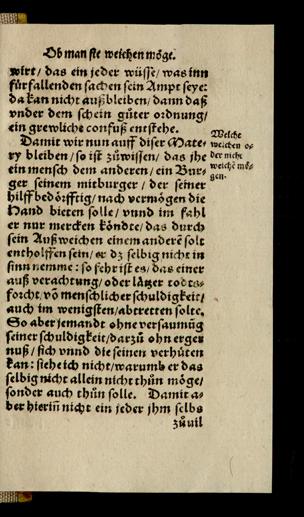 Ob man ſie weichen möge.
wirt/ das ein jeder wüſſe/ was inn
fürfallenden sachen ſein Ampt ſeye:
da kan nicht außbleiben/ dann daß
vnder dem ſchein gůter ordnung/
ein grewliche confuß entſtehe.
Damit wir nun auff diſer Mate-
ry bleiben/ ſo iſt zůwiſſen/ das jhe
ein menſch dem anderen/ ein Bur-
ger ſeinem mitburger/ der ſeiner
hilff bedörfftig/ nach vermögen die
Hand bieten ſolle/ vnnd im fahl
er nur mercken köndte/ das durch
ſein Außweichen einem anderē ſolt
entholffen ſein/ er dz ſelbig nicht in
ſinn nemme: ſo fehr iſt es/ das einer
auß verachtung/ oder lätzer todts-
forcht/ vō menſchlicher ſchuldigkeit/
auch im wenigſten/ abtretten ſolte.
So aber jemandt ohne verſaumüg
ſeiner ſchuldigkeit/ darzů ohn erger
nuß/ ſich vnnd die ſeinen verhüten
kan: ſiehe ich nicht/ warumb er das
ſelbig nicht allein nicht thůn möge/
ſonder auch thůn ſolle. Damit a-
ber hieriñ nicht ein jeder jhm ſelbs
zůvil
Welche
weichen o-
der nicht
weichē mö-
gen.